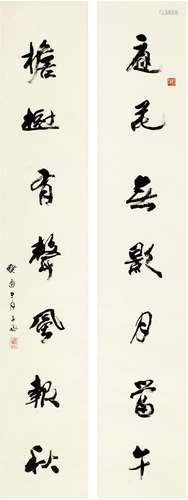 庭花無影月當午
檐樹有聲風報秋